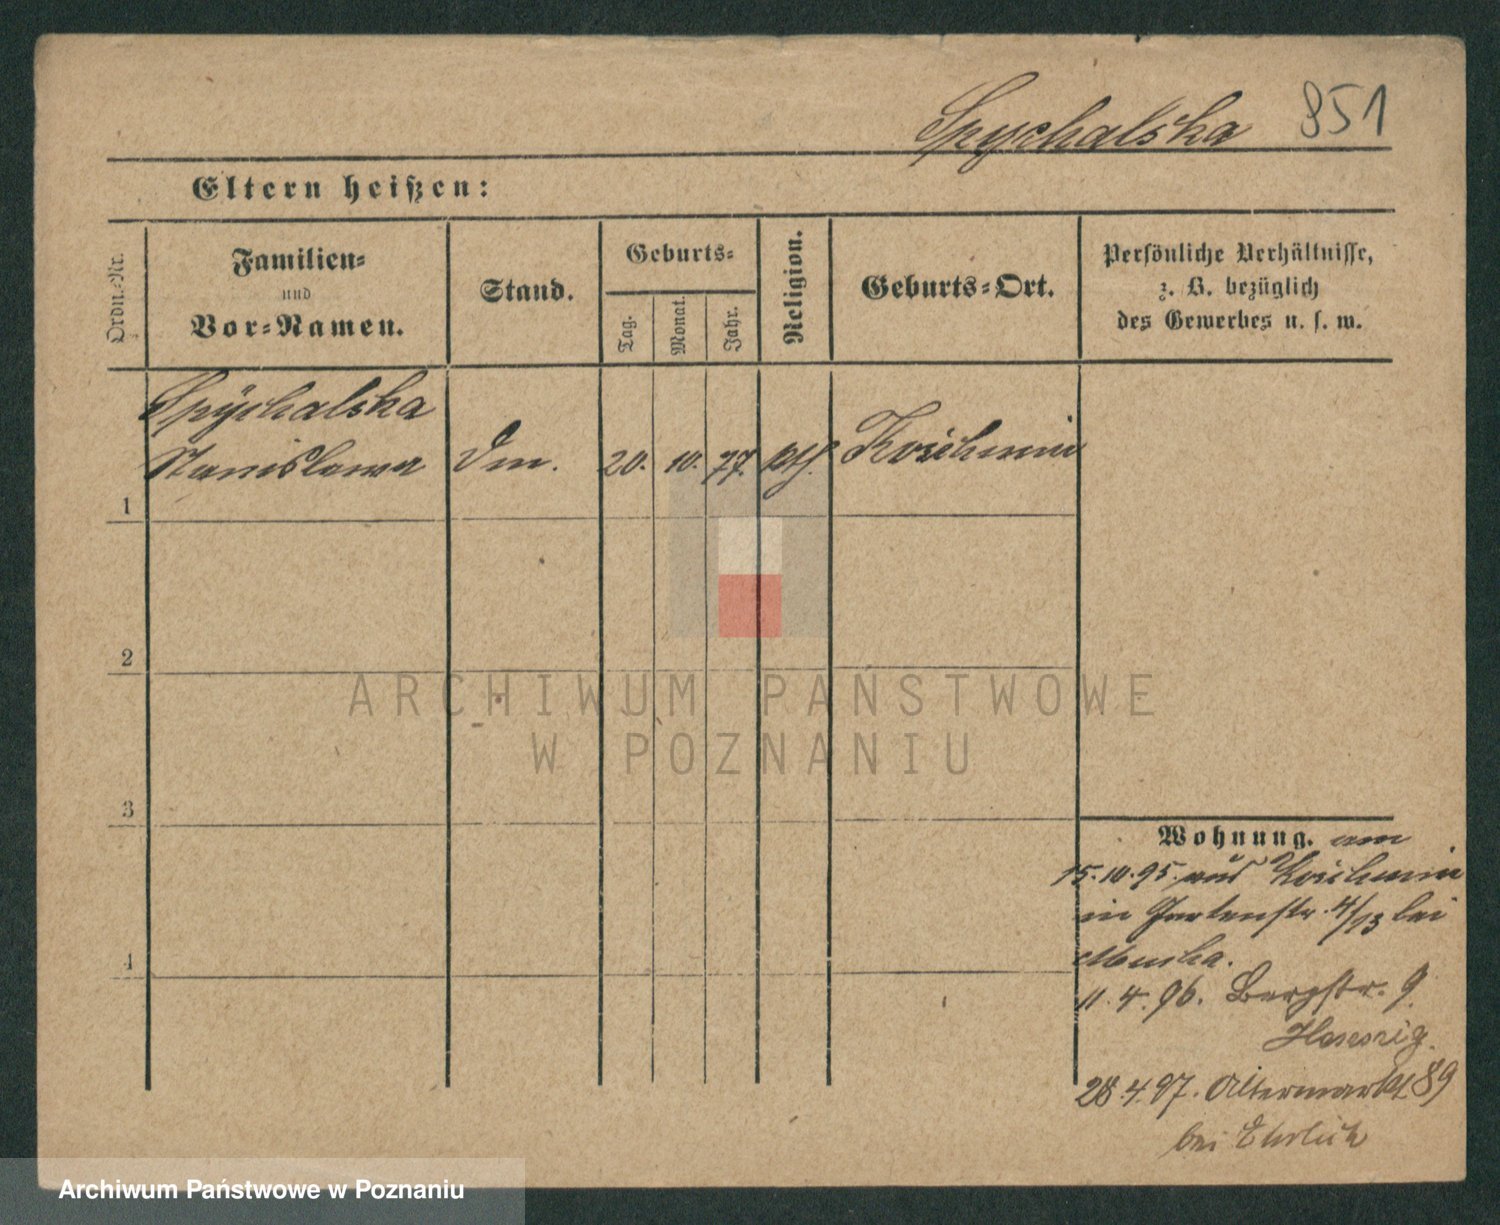 Spychalska 851
Eltern heißen:
Ordn.-Nr.
Familien-
und
Vor-Namen.
Stand.
Geburts-
Tag.
Monat.
Jahr.
Religion.
Geburts-Ort.
Persönliche Verhältnisse,
z. B. bezüglich
des Gewerbes u. s. w.
Spychalska
Stanislawa Dm. 20. 10. 77. kth. Koschmin
1
2
3
4
Wohnung. am
15.10.95. aus Koschmin
in Gartenstr. 4/13 bei
11.4.96. Bergstr. 9
28.4.97. Altermarkt 89
bei Ehrlich
ARCHIWUM PAŃSTWOWE
W POZNANIU
Archiwum Państwowe w Poznaniu